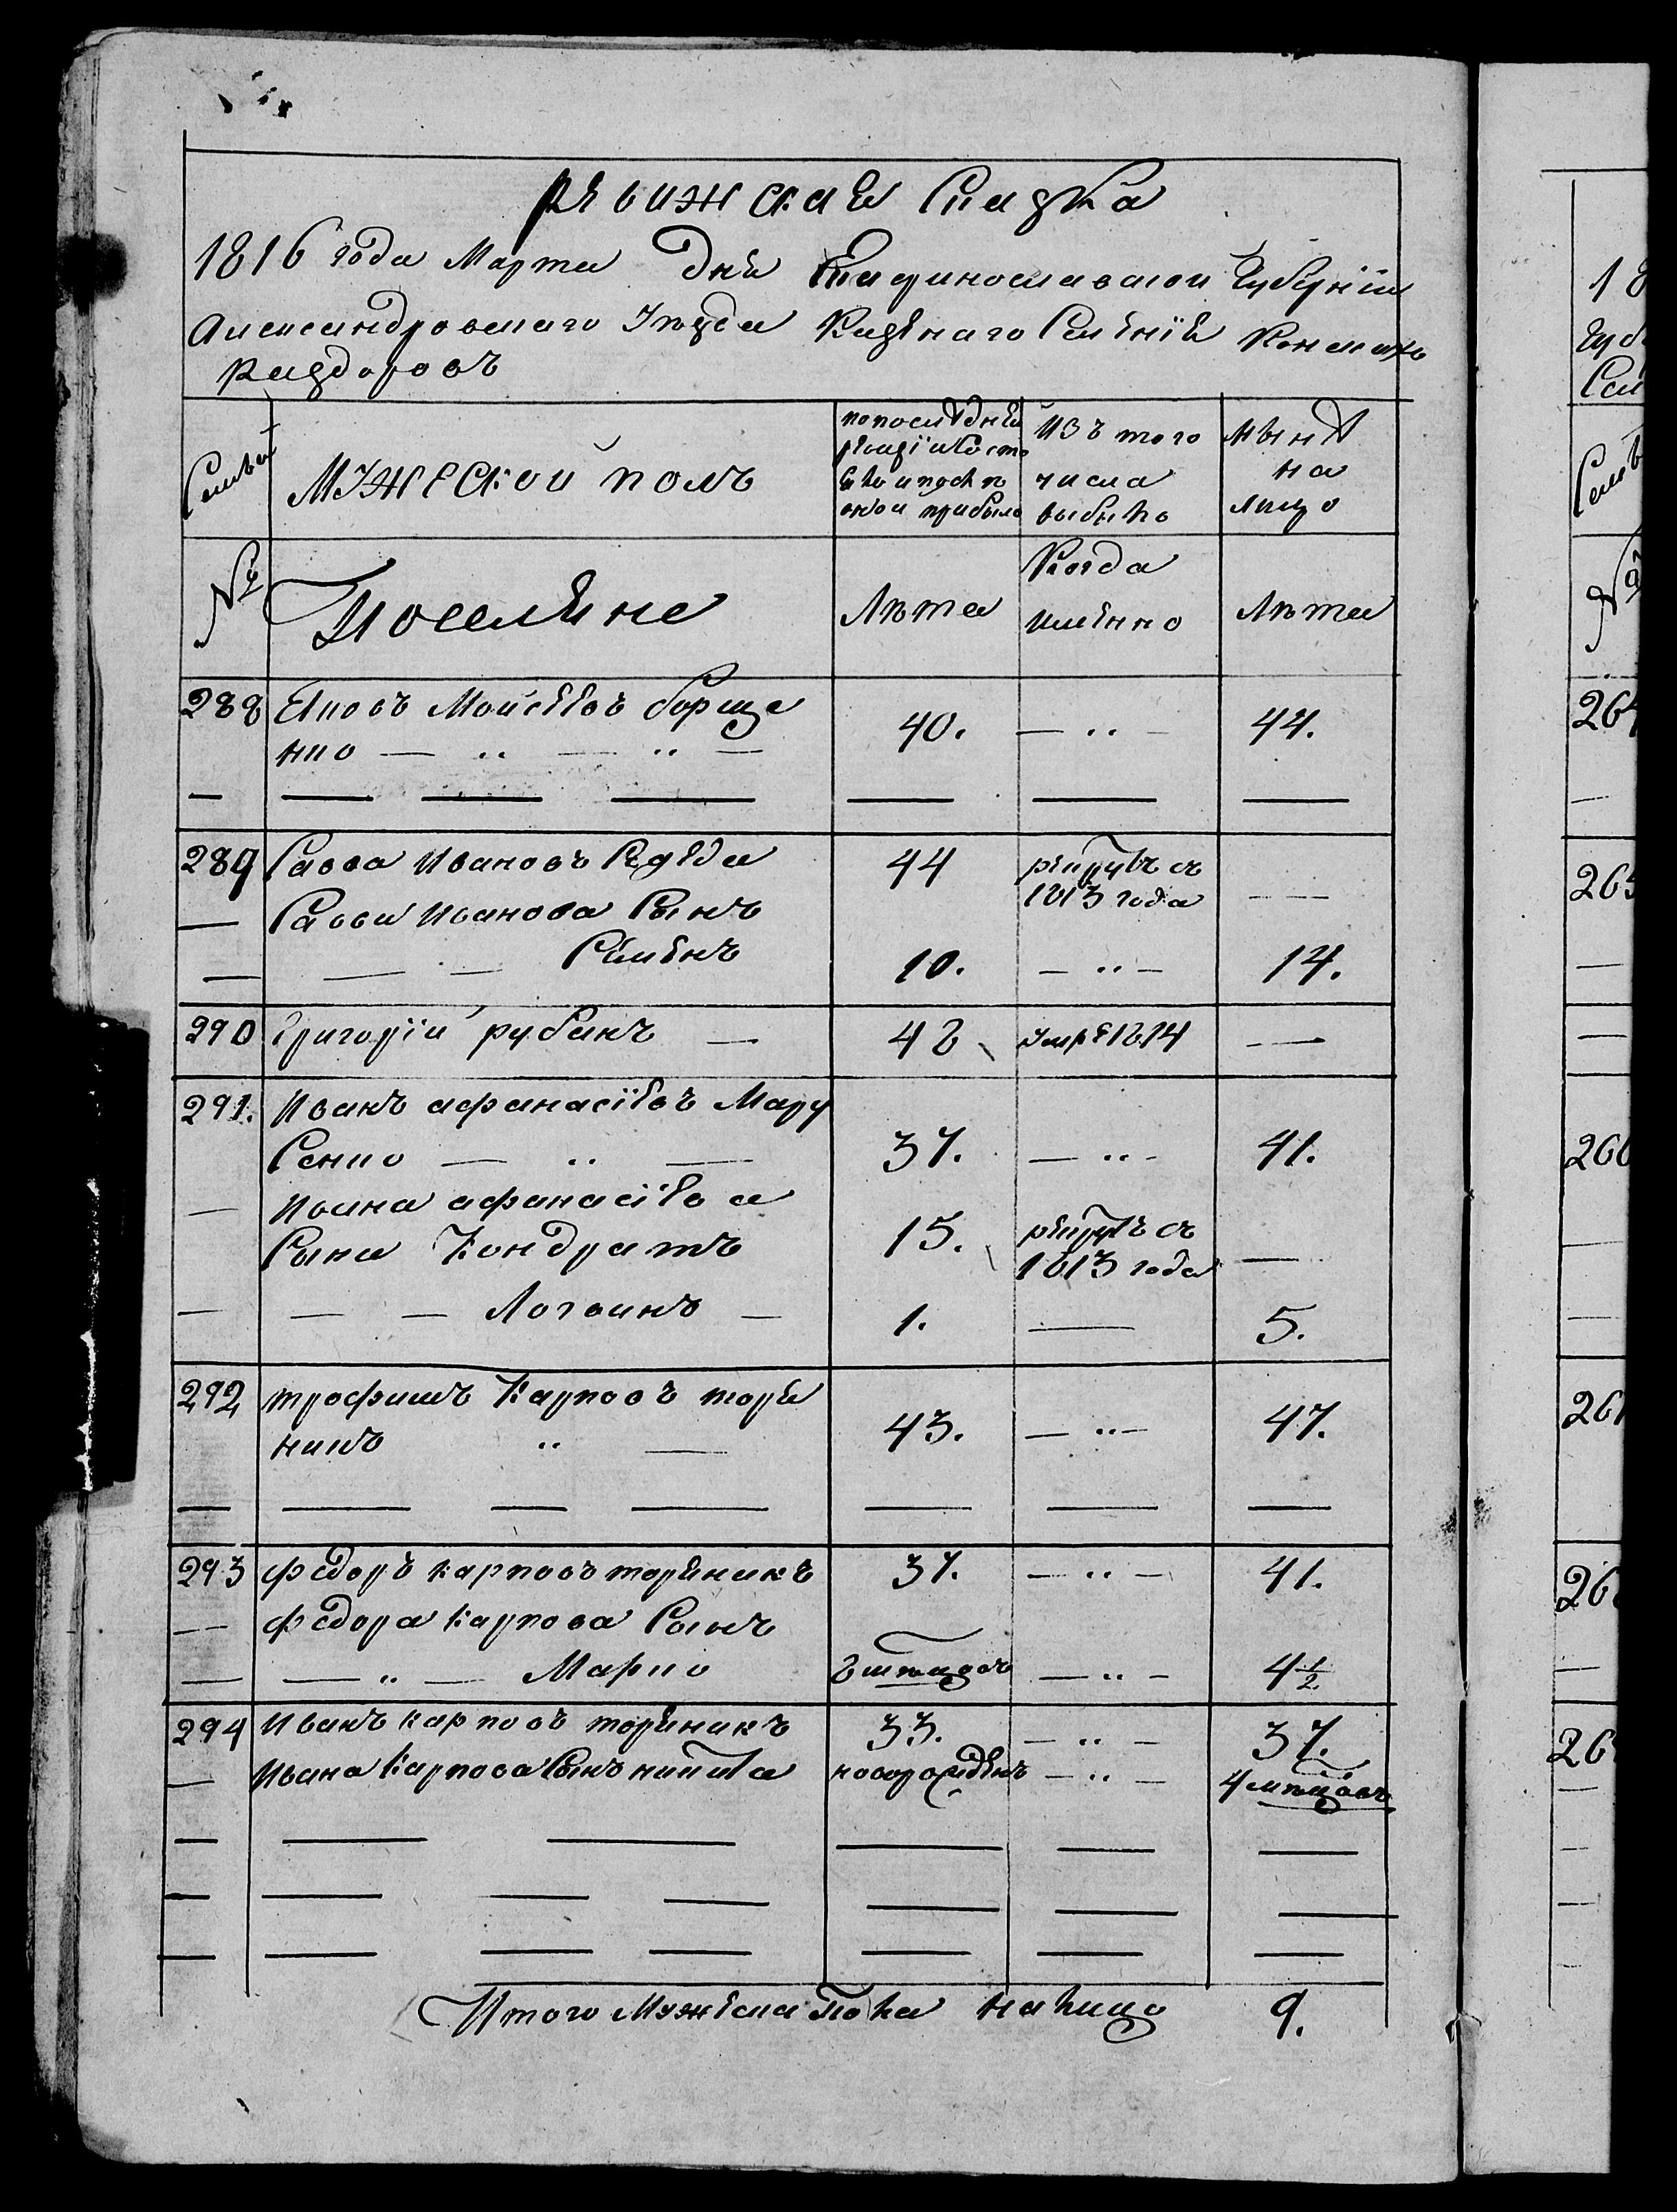 Ревижская Сказка
1816 года Марта дня Екатиринославской Губерніи
Александровскаго Уезда Казенаго Селенія Конскихъ
Раздоровъ
Семьи
Мужеской полъ
попоследней ревизіи состояло и после оной прибыло
Изъ того числа выбыло
Ныне на лицо
№
Поселяне
Лета
Когда именно
Лета
288 Яковъ Мойсеевъ борще 40. — .. — 44.
нко — .. — .. —
289 Савва Ивановъ Середа 44 рекрутъ съ 1813 года — —
— Саввы Иванова Сынъ
— — — Семенъ 10. — .. — 14.
290 Григорій рубанъ — 42 умре 1814 — —
291. Иванъ афанасіевъ Мару
Сенко — .. — 37. — .. — 41.
— Ивана афанасіева
Сына Кондратъ 15. рекрутъ съ 1813 года —
— — — Логвинъ — 1. — 5.
292 трофимъ Карповъ торя
никъ .. — 43. — .. — 47.
293 федоръ карповъ торяникъ 37. — .. — 41.
— федора карпова Сынъ
— — .. — Марко 6 месяцовъ — .. — 4½
294 Иванъ карповъ торяникъ 33. — .. — 37.
— Ивана Карпова Сынъ никита новорожденъ — .. — 4 месяцовъ
Итого Мужеска пола налицо 9.
18
Губе
Сел
Семь
№
264
265
266
267
268
26